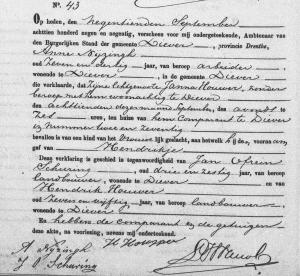 N°. 43
Op heden, den negentienden September
achttien honderd negen en negentig, verscheen voor mij ondergeteekende, Ambtenaar van
den Burgerlijken Stand der gemeente Diever, provincie Drenthe,
Anne Nijzingh
oud zeven en dertig jaar, van beroep arbeider,
wonende te Diever, in de gemeente Diever
die verklaarde, dat zijne echtgenoote Janna Houwer, zonder
beroep, met hem woonachtig te Diever
den achttienden dezer maand September, des avonds te
zes uren, ten huize van hem Comparant te Diever
in nummer twee en zeventig
bevallen is van een kind van het vrouwelijk geslacht, aan hetwelk hij den voornaam
Hendrikje
Deze verklaring is geschied in tegenwoordigheid van Jan
Schuring oud drie en zestig jaar, van beroep
landbouwer, wonende te Diever en van
Hendrik Houwer
oud zeven en vijftig jaar, van beroep landbouwer
wonende te Diever
En hebben de comparant en de getuigen
deze akte, na voorlezing, nevens mij onderteekend.
A Nijzingh H Houwer
J O Schuring